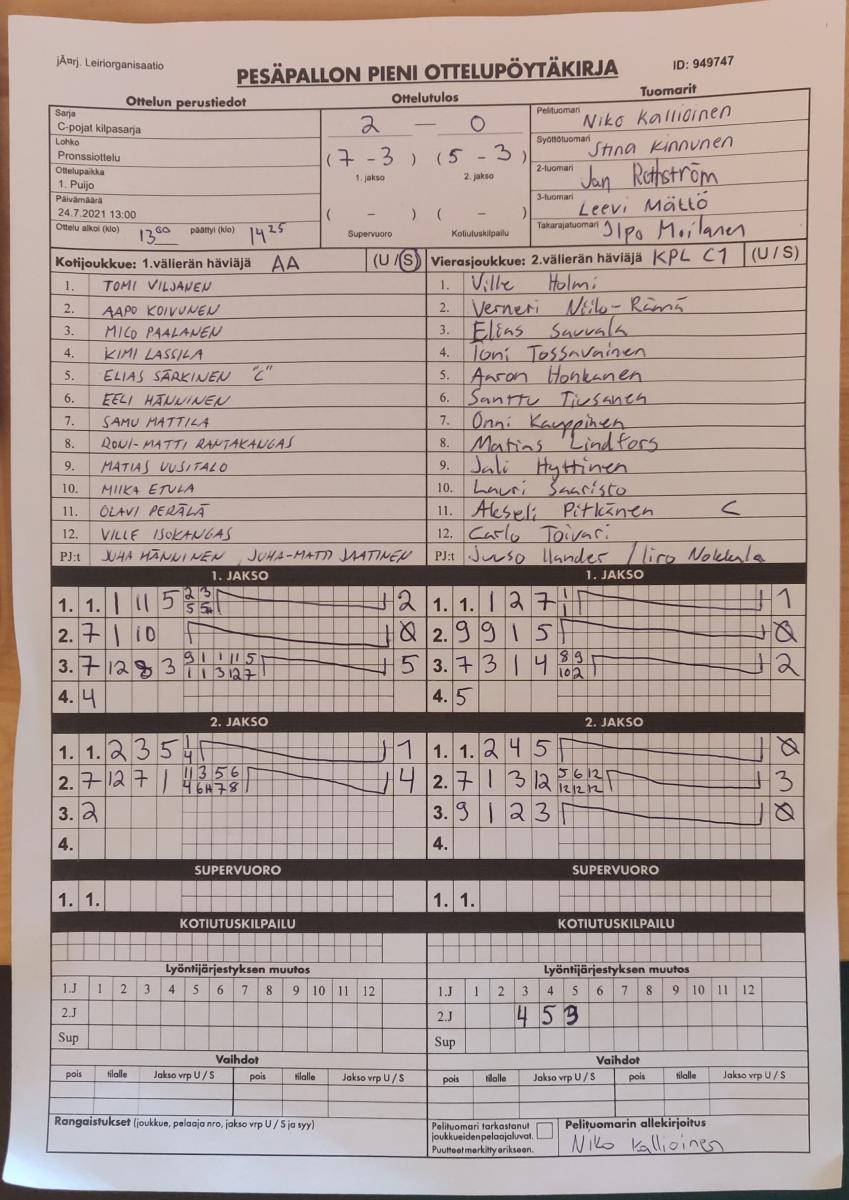 jÃ¤rj. Leiriorganisaatio
PESÄPALLON PIENI OTTELUPÖYTÄKIRJA
ID: 949747
Ottelun perustiedot
Ottelutulos
Tuomarit
Sarja
C-pojat kilpasarja
Lohko
Pronssiottelu
Ottelupaikka
1. Puijo
Päivämäärä
24.7.2021 13:00
Ottelu alkoi (klo) 13 00 päättyi (klo) 14 25
2 — 0
(7 - 3) (5 - 3)
1. jakso 2. jakso
( - ) ( - )
Supervuoro Kotiutuskilpailu
Pelituomari Niko Kallioinen
Syöttötuomari Stina Kinnunen
2-tuomari Jan Rothström
3-tuomari Leevi Mättö
Takarajatuomari Ilpo Moilanen
Kotijoukkue: 1.välierän häviäjä AA (U / S)
1. TOMI VILJANEN
2. AAPO KOIVUNEN
3. MICO PAALANEN
4. KIMI LASSILA
5. ELIAS SÄRKINEN "C"
6. EELI HÄNNINEN
7. SAMU MATTILA
8. RONI-MATTI RANTAKANGAS
9. MATIAS UUSITALO
10. MIIKA ETULA
11. OLAVI PERÄLÄ
12. VILLE ISOKANGAS
PJ:t JUHA HÄNNINEN, JUHA-MATTI JAATINEN
Vierasjoukkue: 2.välierän häviäjä KPL C1 (U / S)
1. Ville Holmi
2. Verneri Niilo-Rämä
3. Elias Sauvala
4. Toni Tossavainen
5. Aaron Honkanen
6. Santtu Tiusanen
7. Onni Kauppinen
8. Matias Lindfors
9. Jali Hyttinen
10. Lauri Saaristo
11. Akseli Pitkänen C
12. Carlo Toivari
PJ:t Juuso Ilander / Iiro Nokkala
1. JAKSO
1. 1. 1 11 5 2 3 2
5 5
2. 7 1 10 0
3. 7 12 8 3 9 1 1 11 5 5
1 1 3 12 7
4. 4
2. JAKSO
1. 1. 2 3 5 1 1
4
2. 7 12 7 1 11 3 5 6 4
4 6H 7 8
3. 2
4.
SUPERVUORO
1. 1.
KOTIUTUSKILPAILU
Lyöntijärjestyksen muutos
1.J 1 2 3 4 5 6 7 8 9 10 11 12
2.J
Sup
Vaihdot
pois tilalle Jakso vrp U / S pois tilalle Jakso vrp U / S
Rangaistukset (joukkue, pelaaja nro, jakso vrp U / S ja syy)
1. JAKSO
1. 1. 1 2 7 1 1
1
2. 9 9 1 5 0
3. 7 3 1 4 8 9 2
10 2
4. 5
2. JAKSO
1. 1. 2 4 5 0
2. 7 1 3 12 5 6 12 3
12 12 12
3. 9 1 2 3 0
4.
SUPERVUORO
1. 1.
KOTIUTUSKILPAILU
Lyöntijärjestyksen muutos
1.J 1 2 3 4 5 6 7 8 9 10 11 12
2.J 4 5 3
Sup
Vaihdot
pois tilalle Jakso vrp U / S pois tilalle Jakso vrp U / S
Pelituomari tarkastanut
joukkueidenpelaajaluvat.
Puutteet merkitty erikseen.
Pelituomarin allekirjoitus
Niko Kallioinen